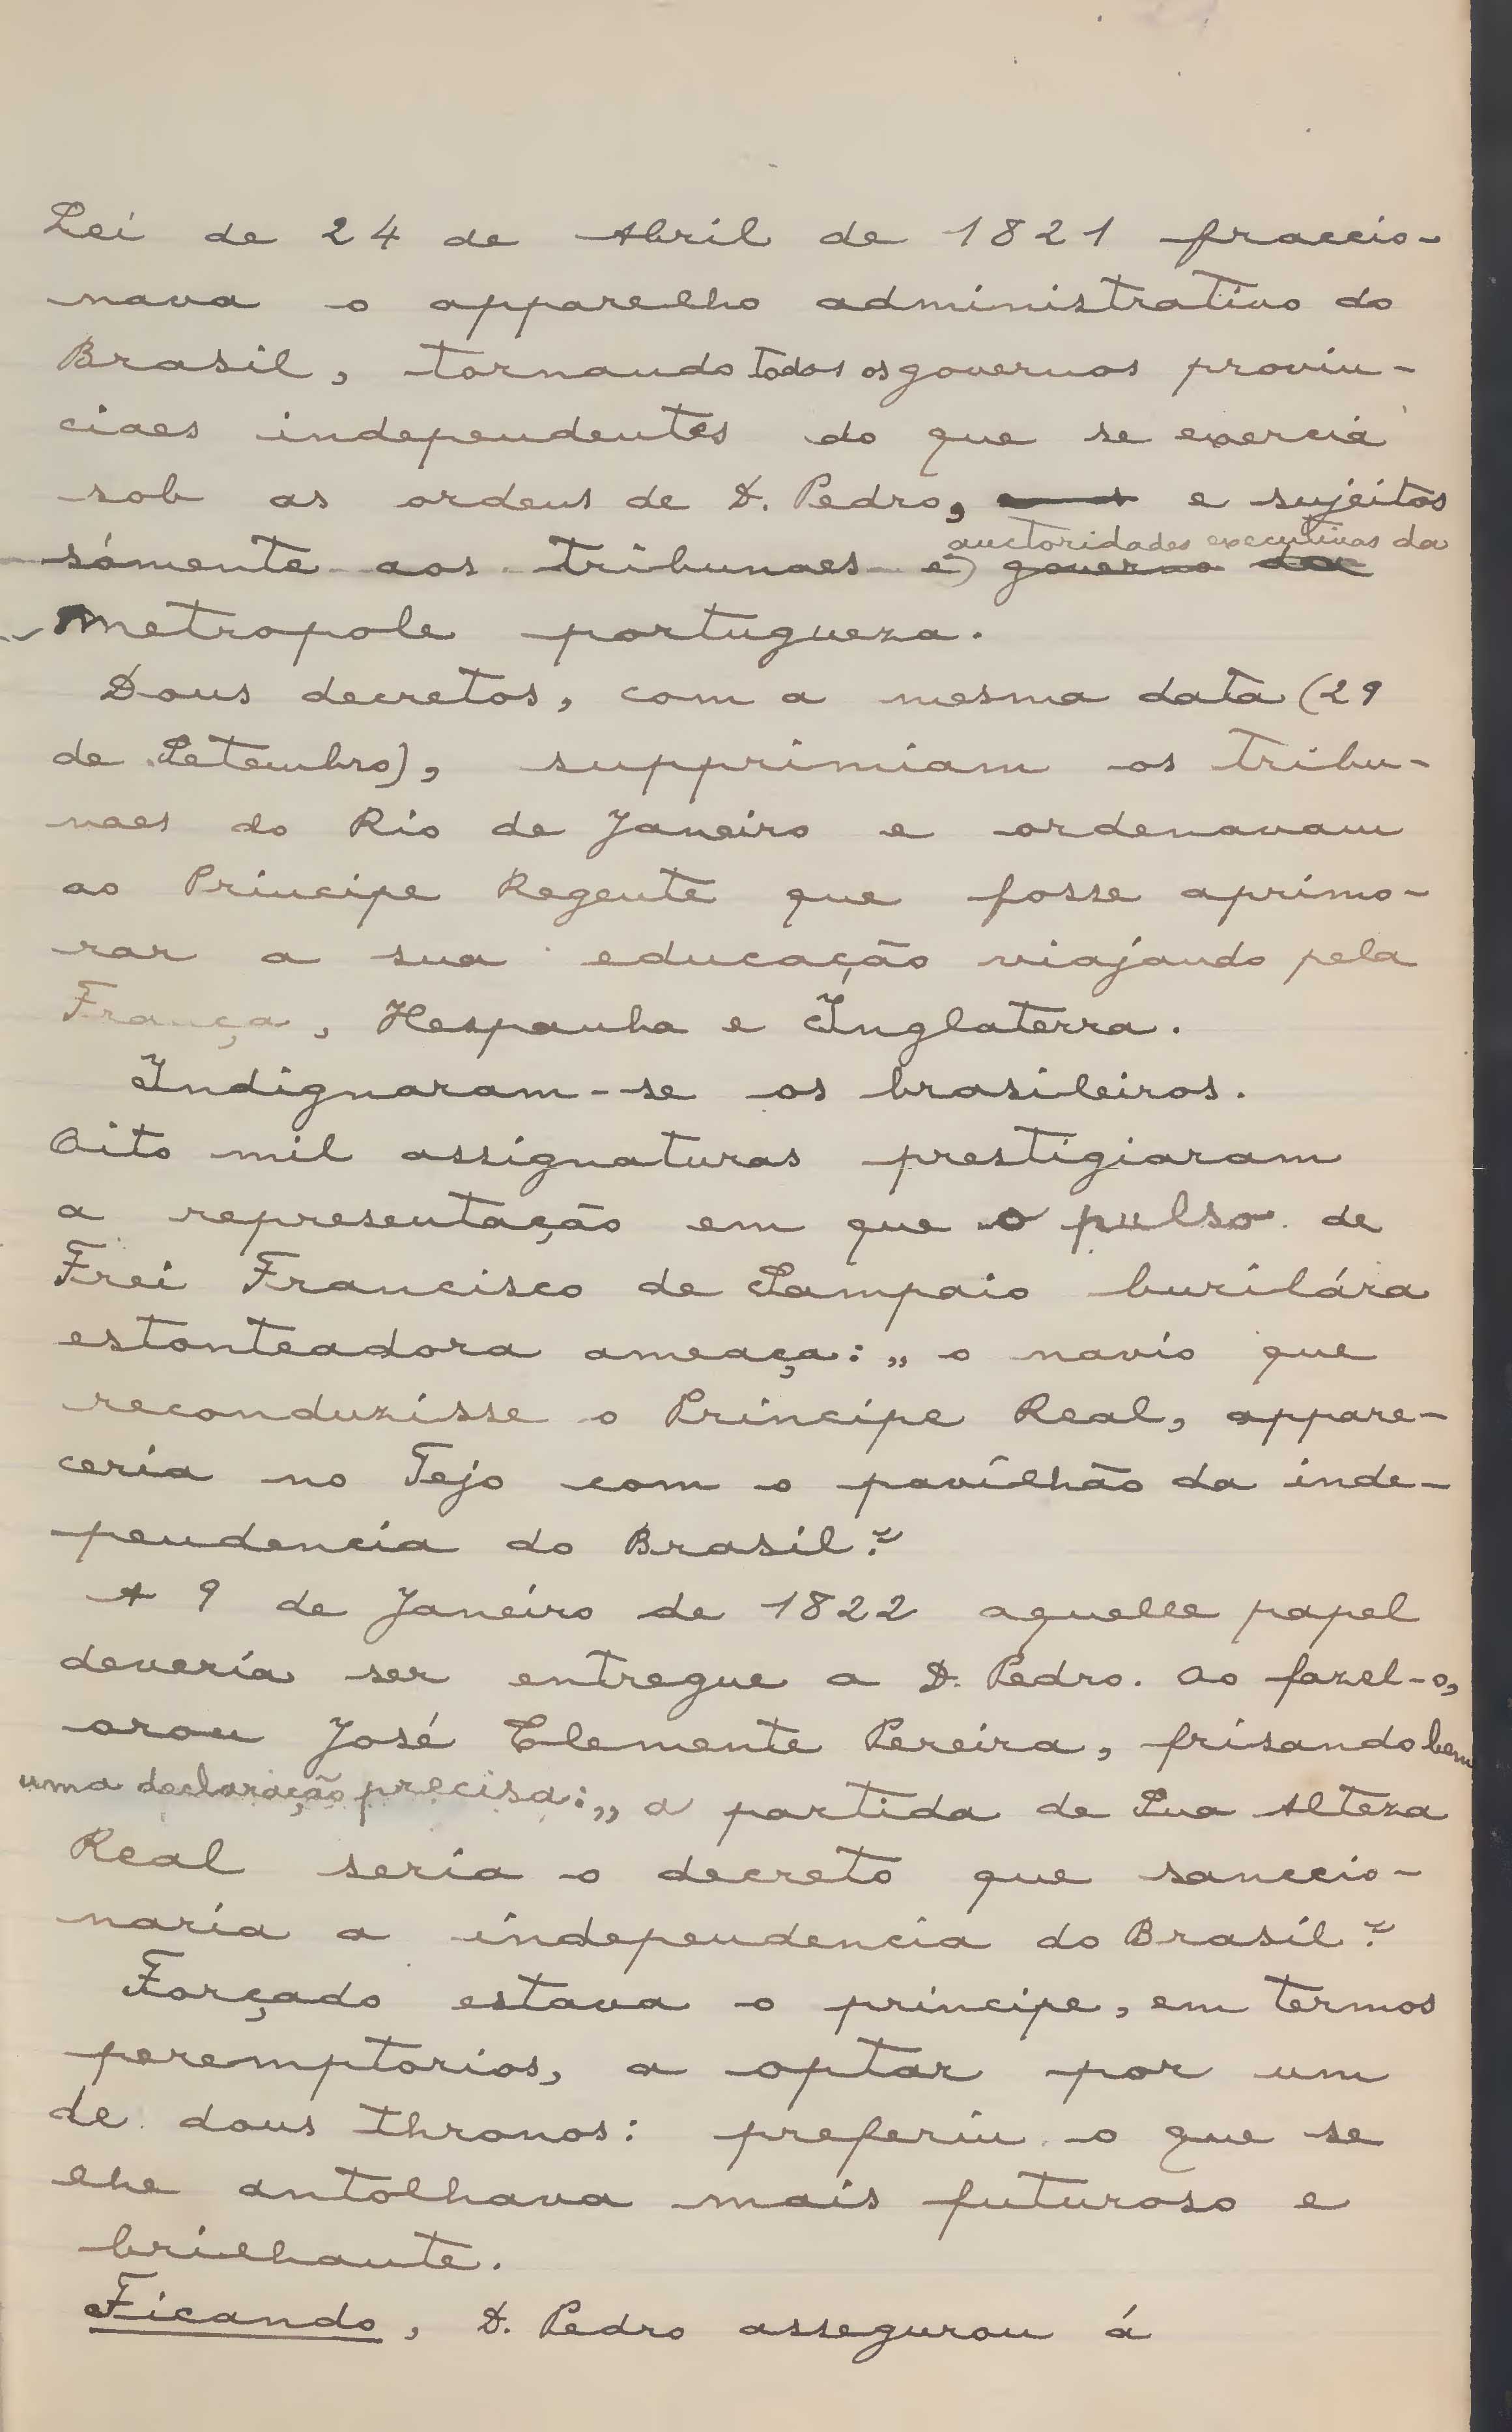 Lei de 24 de Abril de 1821 fraccio-
nava o apparelho administrativo do
Brasil, tornando todos os governos provin-
ciaes independentes do que se exercia
sob as ordens de D. Pedro, e sujeitos
auctoridades executivas da
sómente aos tribunaes e governo da
Metropole portugueza.
Dous decretos, com a mesma data (29
de Setembro), supprimiam os tribu-
naes do Rio de Janeiro e ordenavam
ao Principe Regente que fosse aprimo-
rar a sua educação viajando pela
França, Hespanha e Inglaterra.
Indignaram-se os brasileiros.
Oito mil assignaturas prestigiaram
a representação em que o pulso de
Frei Francisco de Sampaio burilára
estonteadora ameaça: „o navio que
reconduzisse o Principe Real, appare-
ceria no Tejo com o pavilhão da inde-
pendencia do Brasil.”
A 9 de Janeiro de 1822 aquelle papel
deveria ser entregue a D. Pedro. Ao fazel-o,
orou José Clemente Pereira, frisando bem
uma declaração precisa: „a partida de Sua Alteza
Real seria o decreto que sanccio-
naria a independencia do Brasil.”
Forçado estava o principe, em termos
peremptorios, a optar por um
de dous thronos: preferiu o que se
lhe antolhava mais futuroso e
brilhante.
Ficando, D. Pedro assegurou á